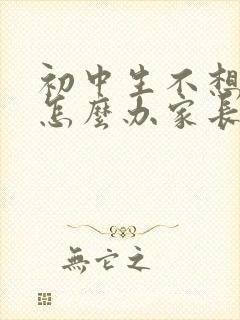 初中生不想
怎麼办家長
無它之